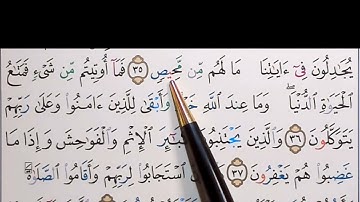 يُجَٰدِلُونَ فِىٓ ءَايَٰتِنَا مَا لَهُم مِّن مَّحِيصٍ ٣٥ فَمَآ أُوتِيتُم مِّن شَىْءٍ فَمَتَٰعُ
ٱلْحَيَوٰةِ ٱلدُّنْيَا ۖ وَمَا عِندَ ٱللَّهِ خَيْرٌ وَأَبْقَىٰ لِلَّذِينَ ءَامَنُوا۟ وَعَلَىٰ رَبِّهِمْ
يَتَوَكَّلُونَ ٣٦ وَٱلَّذِينَ يَجْتَنِبُونَ كَبَٰٓئِرَ ٱلْإِثْمِ وَٱلْفَوَٰحِشَ وَإِذَا مَا
غَضِبُوا۟ هُمْ يَغْفِرُونَ ٣٧ ٱسْتَجَابُوا۟ لِرَبِّهِمْ وَأَقَامُوا۟ ٱلصَّلَوٰةَ